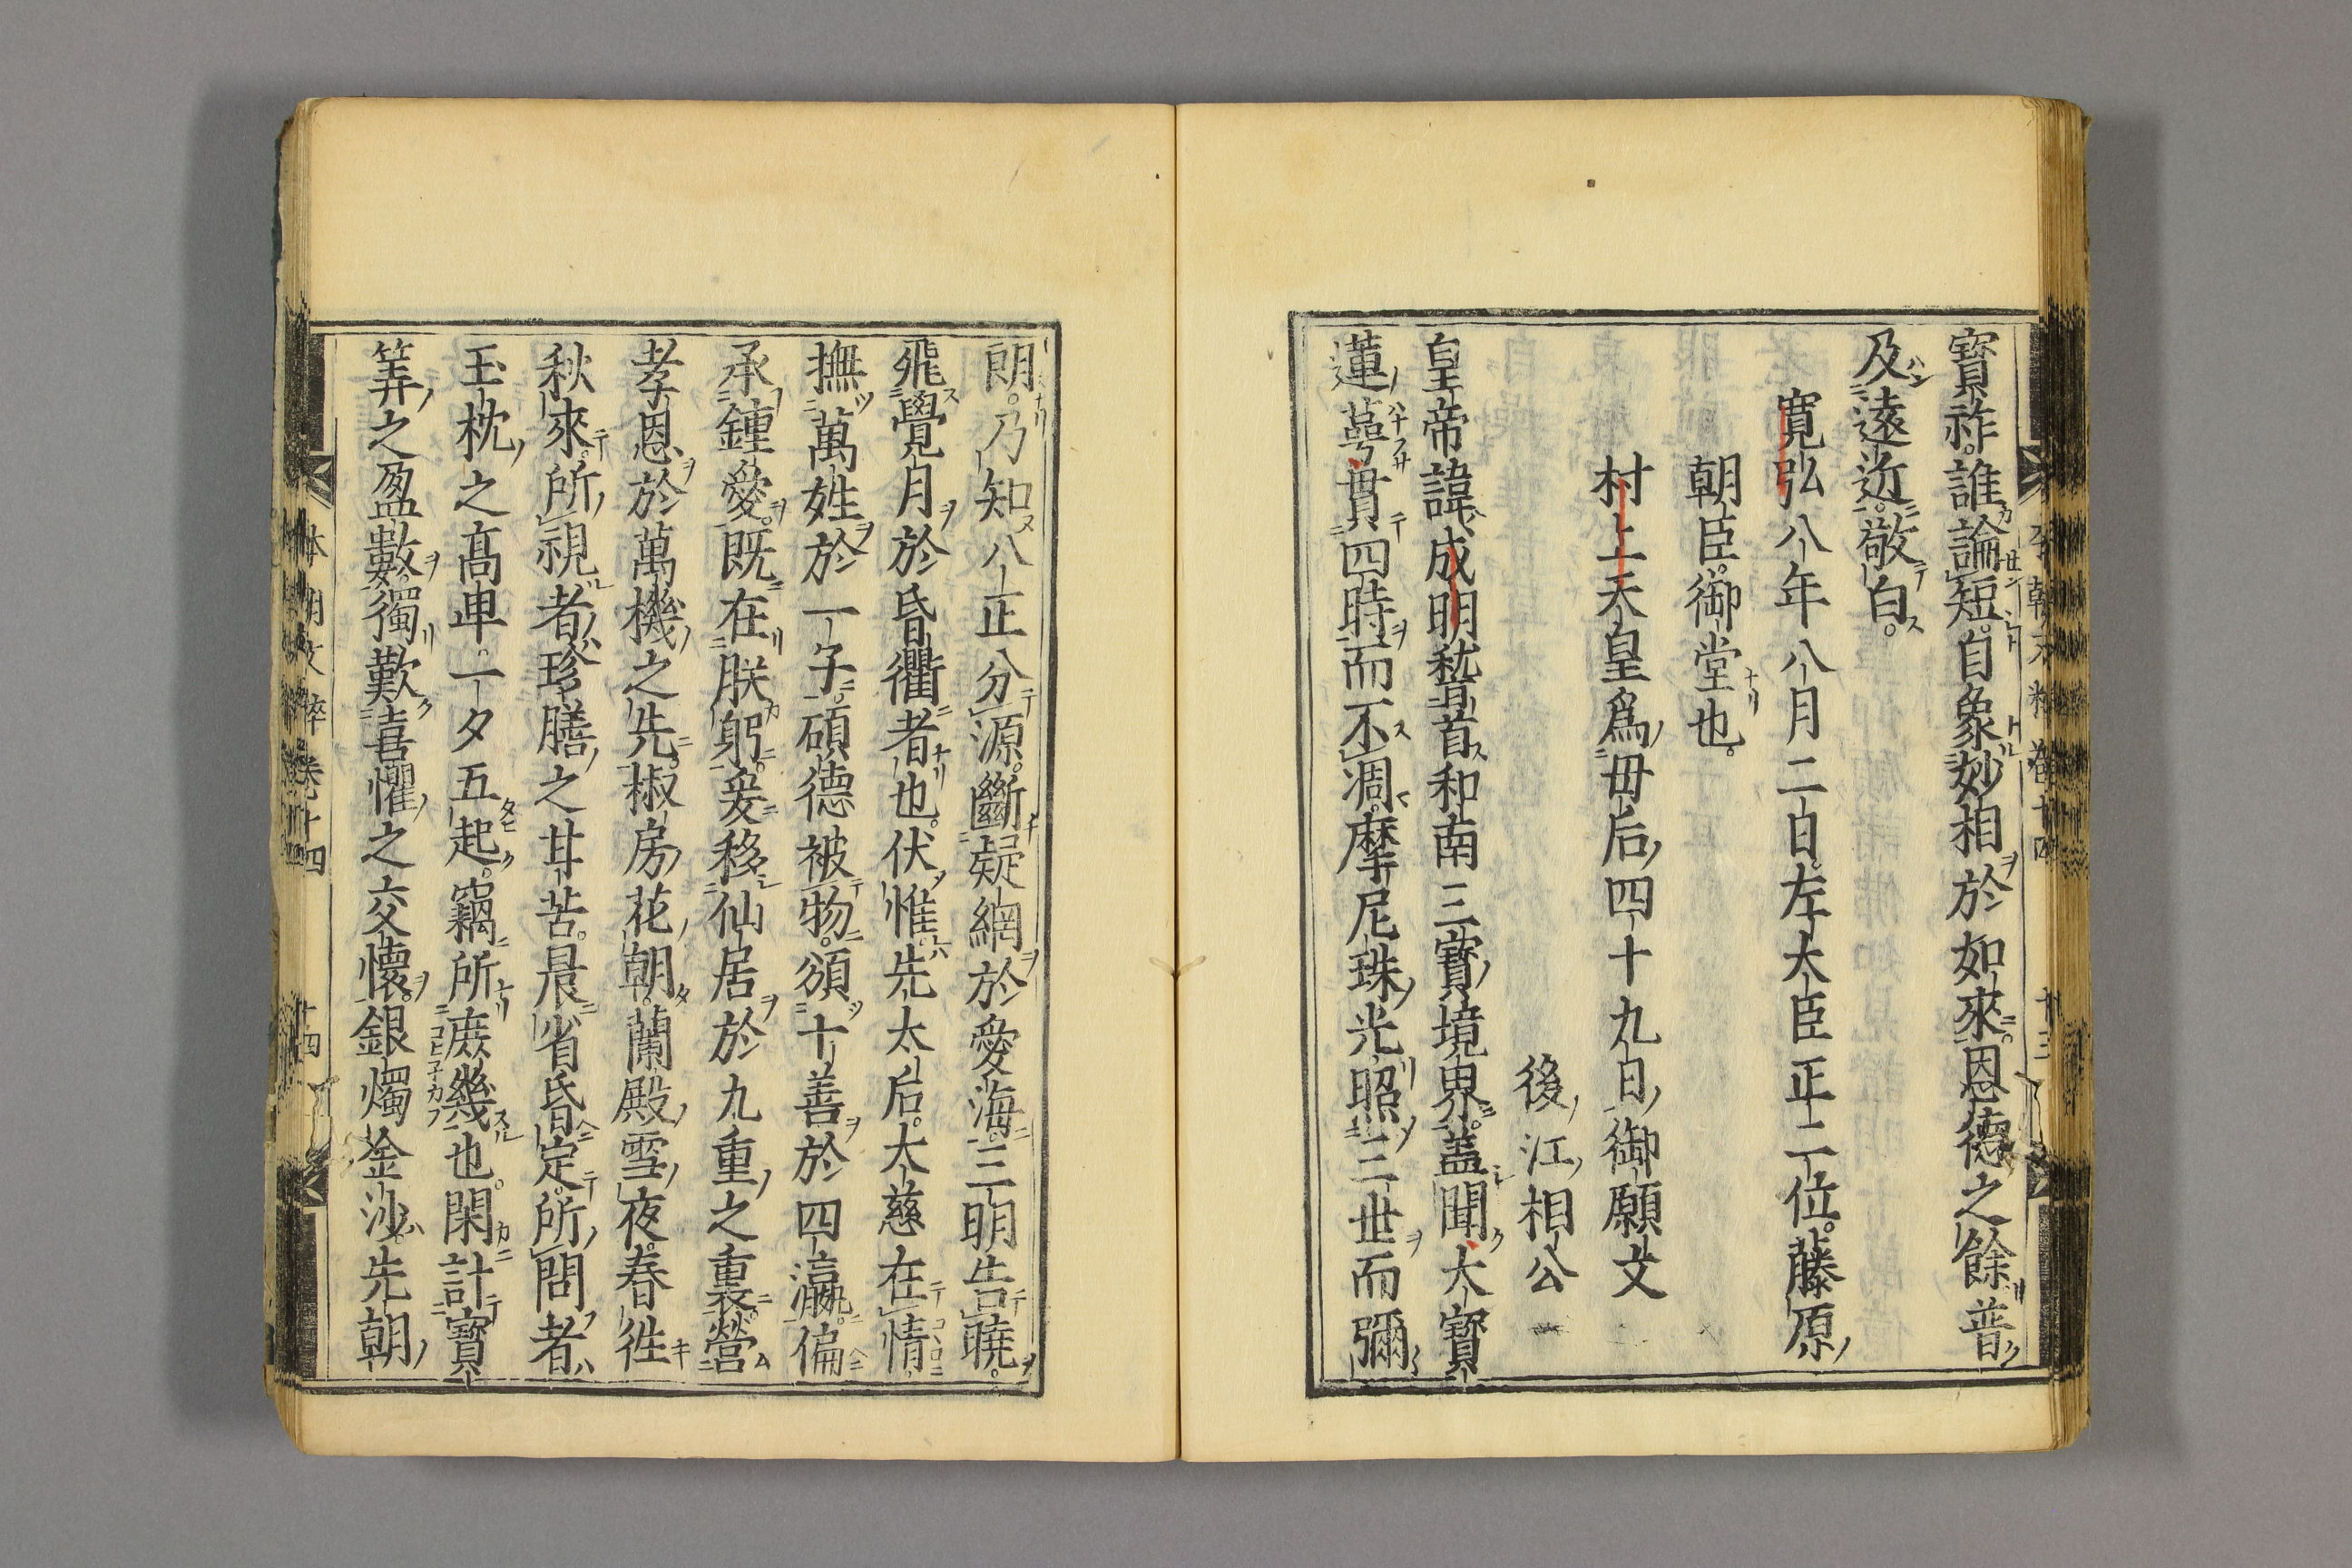 寳祚。誰論短。自象妙相於如來。恩德之餘普
及遠近。敬白。
寛弘八年八月二日。左大臣正二位。藤原
朝臣。御堂也。
村上天皇爲母后四十九日御願文
後江相公
皇帝諱成明稽首和南三寳境界。蓋聞大寳
蓮蕚貫四時而不凋。摩尼珠光照三世而彌
朗。乃知八正分源。斷疑網於愛海。三明告曉。
飛覺月於昏衢者也。伏惟先太后。大慈在情
撫萬姓於一子。碩德被物。頒十善於四瀛。偏
承鍾愛。既在朕躬。爰移仙居於九重之裏。營
孝恩於萬機之先。椒房花朝。蘭殿雪夜。春徃
秋來。所視者珍膳之甘苦。晨省昏定。所問者
玉枕之髙卑。一夕五起。竊所庻幾也。閑計寳
筭之盈數。獨歎喜懼之交懷。銀燭釜沙。先朝
本朝文粹 卷十四 十三
本朝文粹 卷十四 十四